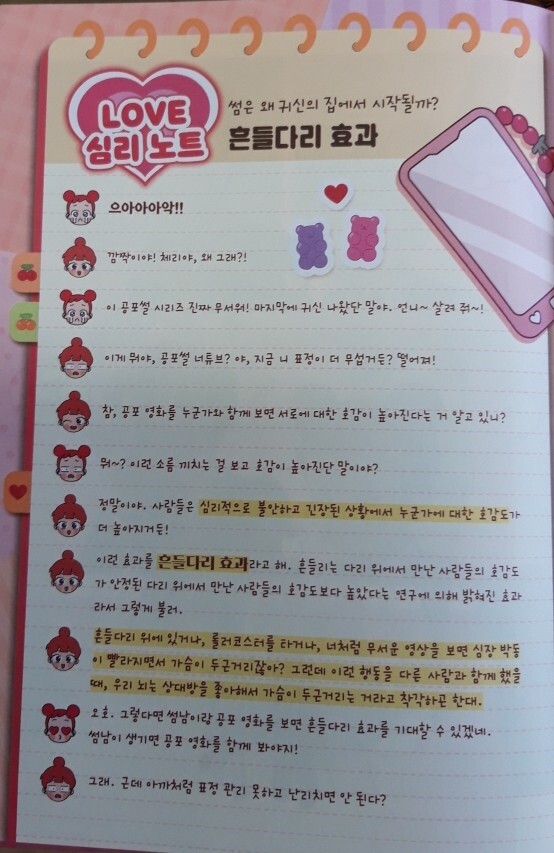 LOVE
심리 노트
썸은 왜 귀신의 집에서 시작될까?
흔들다리 효과
으아아아악!!
깜짝이야! 체리야, 왜 그래?!
이 공포썰 시리즈 진짜 무서워! 마지막에 귀신 나왔단 말야. 언니~ 살려 줘~!
이게 뭐야, 공포썰 너튜브? 야, 지금 니 표정이 더 무섭거든? 떨어져!
참, 공포 영화를 누군가와 함께 보면 서로에 대한 호감이 높아진다는 거 알고 있니?
뭐~? 이런 소름 끼치는 걸 보고 호감이 높아진단 말이야?
정말이야. 사람들은 심리적으로 불안하고 긴장된 상황에서 누군가에 대한 호감도가
더 높아지거든!
이런 효과를 흔들다리 효과라고 해. 흔들리는 다리 위에서 만난 사람들의 호감도
가 안정된 다리 위에서 만난 사람들의 호감도보다 높았다는 연구에 의해 밝혀진 효과
라서 그렇게 불러.
흔들다리 위에 있거나, 롤러코스터를 타거나, 너처럼 무서운 영상을 보면 심장 박동
이 빨라지면서 가슴이 두근거리잖아? 그런데 이런 행동을 다른 사람과 함께 했을
때, 우리 뇌는 상대방을 좋아해서 가슴이 두근거리는 거라고 착각하곤 한대.
오호. 그렇다면 썸남이랑 공포 영화를 보면 흔들다리 효과를 기대할 수 있겠네.
썸남이 생기면 공포 영화를 함께 봐야지!
그래. 근데 아까처럼 표정 관리 못하고 난리치면 안 된다?